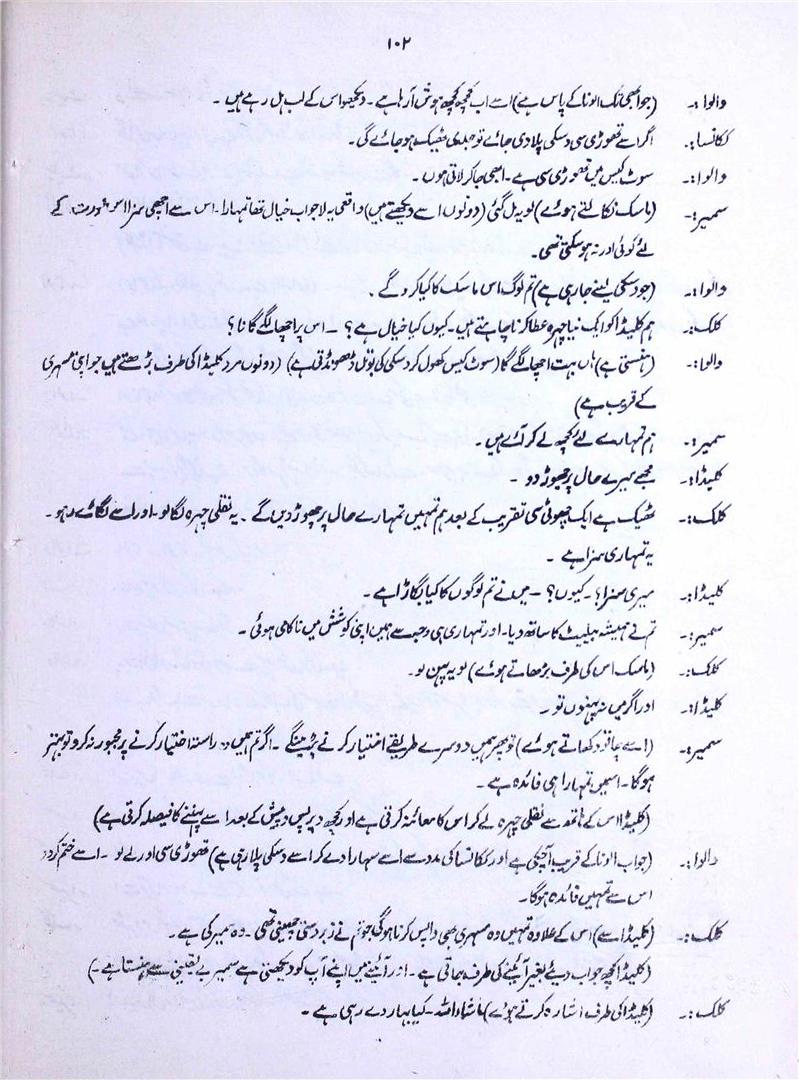 ۱۰۲
والوا:۔ (جو ابھی تک الونا کے پاس ہے) اسے اب کچھ کچھ ہوش آرہا ہے ۔ دیکھو اس کے لب ہل رہے ہیں ۔
ککانسا:۔ اگر اسے تھوڑی سی وسکی پلا دی جائے تو جلدی ٹھیک ہوجائے گی۔
والوا:۔ سوٹ کیس میں تھوڑی سی ہے ۔ ابھی جاکر لاتی ہوں ۔
سمیر:۔ (ماسک نکالتے ہوئے) لو یہ مل گئی (دونوں اسے دیکھتے ہیں) واقعی یہ لاجواب خیال تھا تمہارا ۔ اس سے اچھی سزا اس عورت کے
لئے کوئی اور نہ ہوسکتی تھی۔
والوا:۔ (جو وسکی لینے جا رہی ہے) تم لوگ اس ماسک کا کیا کروگے ۔
کلک:۔ ہم کلیڈا کو ایک نیا چہرہ عطا کرنا چاہتے ہیں ۔ کیوں کیا خیال ہے؟ ۔ اس پر اچھا لگے گا نا؟
والوا:۔ (ہنستی ہے) ہاں بہت اچھا لگے گا (سوٹ کیس کھول کر وسکی کی بوتل ڈھونڈتی ہے) (دونوں مرد کلیڈا کی طرف بڑھتے ہیں جو اپنی مسہری
کے قریب ہے)
سمیر:۔ ہم تمہارے لئے کچھ لے کر آئے ہیں ۔
کلیڈا:۔ مجھے میرے حال پر چھوڑ دو ۔
کلک:۔ ٹھیک ہے ایک چھوٹی سی تقریب کے بعد ہم تمہیں تمہارے حال پر چھوڑ دیں گے ۔ یہ نقلی چہرہ لگا لو ۔ اور اسے لگائے رہو ۔
یہ تمہاری سزا ہے ۔
کلیڈا:۔ میری سزا؟ ۔ کیوں؟ ۔ میں نے تم لوگوں کا کیا بگاڑا ہے ۔
سمیر:۔ تم نے ہمیشہ ہیلیٹ کا ساتھ دیا ۔ اور تمہاری ہی وجہ سے ہمیں اپنی کوشش میں ناکامی ہوئی ۔
کلک:۔ (ماسک اس کی طرف بڑھاتے ہوئے) لو یہ پہن لو۔
کلیڈا:۔ اور اگر میں نہ پہنوں تو ۔
سمیر:۔ (اسے چاقو دکھاتے ہوئے) تو پھر ہمیں دوسرے طریقے اختیار کرنے پڑینگے ۔ اگر تم ہمیں وہ راستہ اختیار کرنے پر مجبور نہ کرو تو بہتر
ہوگا ۔ اسمیں تمہارا ہی فائدہ ہے ۔
(کلیڈا اس کے ہاتھ سے نقلی چہرہ لے کر اس کا معائنہ کرتی ہے اور کچھ دیر پس و پیش کے بعد اسے پہننے کا فیصلہ کرتی ہے)
والوا:۔ (جو اب الونا کے قریب آچکی ہے اور ککانسا کی مدد سے اسے سہارا دے کر اسے وسکی پلا رہی ہے) تھوڑی سی اور لے لو ۔ اسے ختم کردو
اس سے تمہیں فائدہ ہوگا۔
کلک:۔ (کلیڈا سے) اس کے علاوہ تمہیں وہ مسہری بھی واپس کرنا ہوگی جو تم نے زبردستی چھینی تھی ۔ وہ میری ہے ۔
(کلیڈا کچھ جواب دیئے بغیر آئینے کی طرف جاتی ہے ۔ اور آئینے میں اپنے آپ کو دیکھتی ہے سمیر بے یقینی سے ہنستا ہے ۔)
کلک:۔ (کلیڈا کی طرف اشارہ کرتے ہوئے) ماشاءاللہ ۔ کیا بہار دے رہی ہے ۔